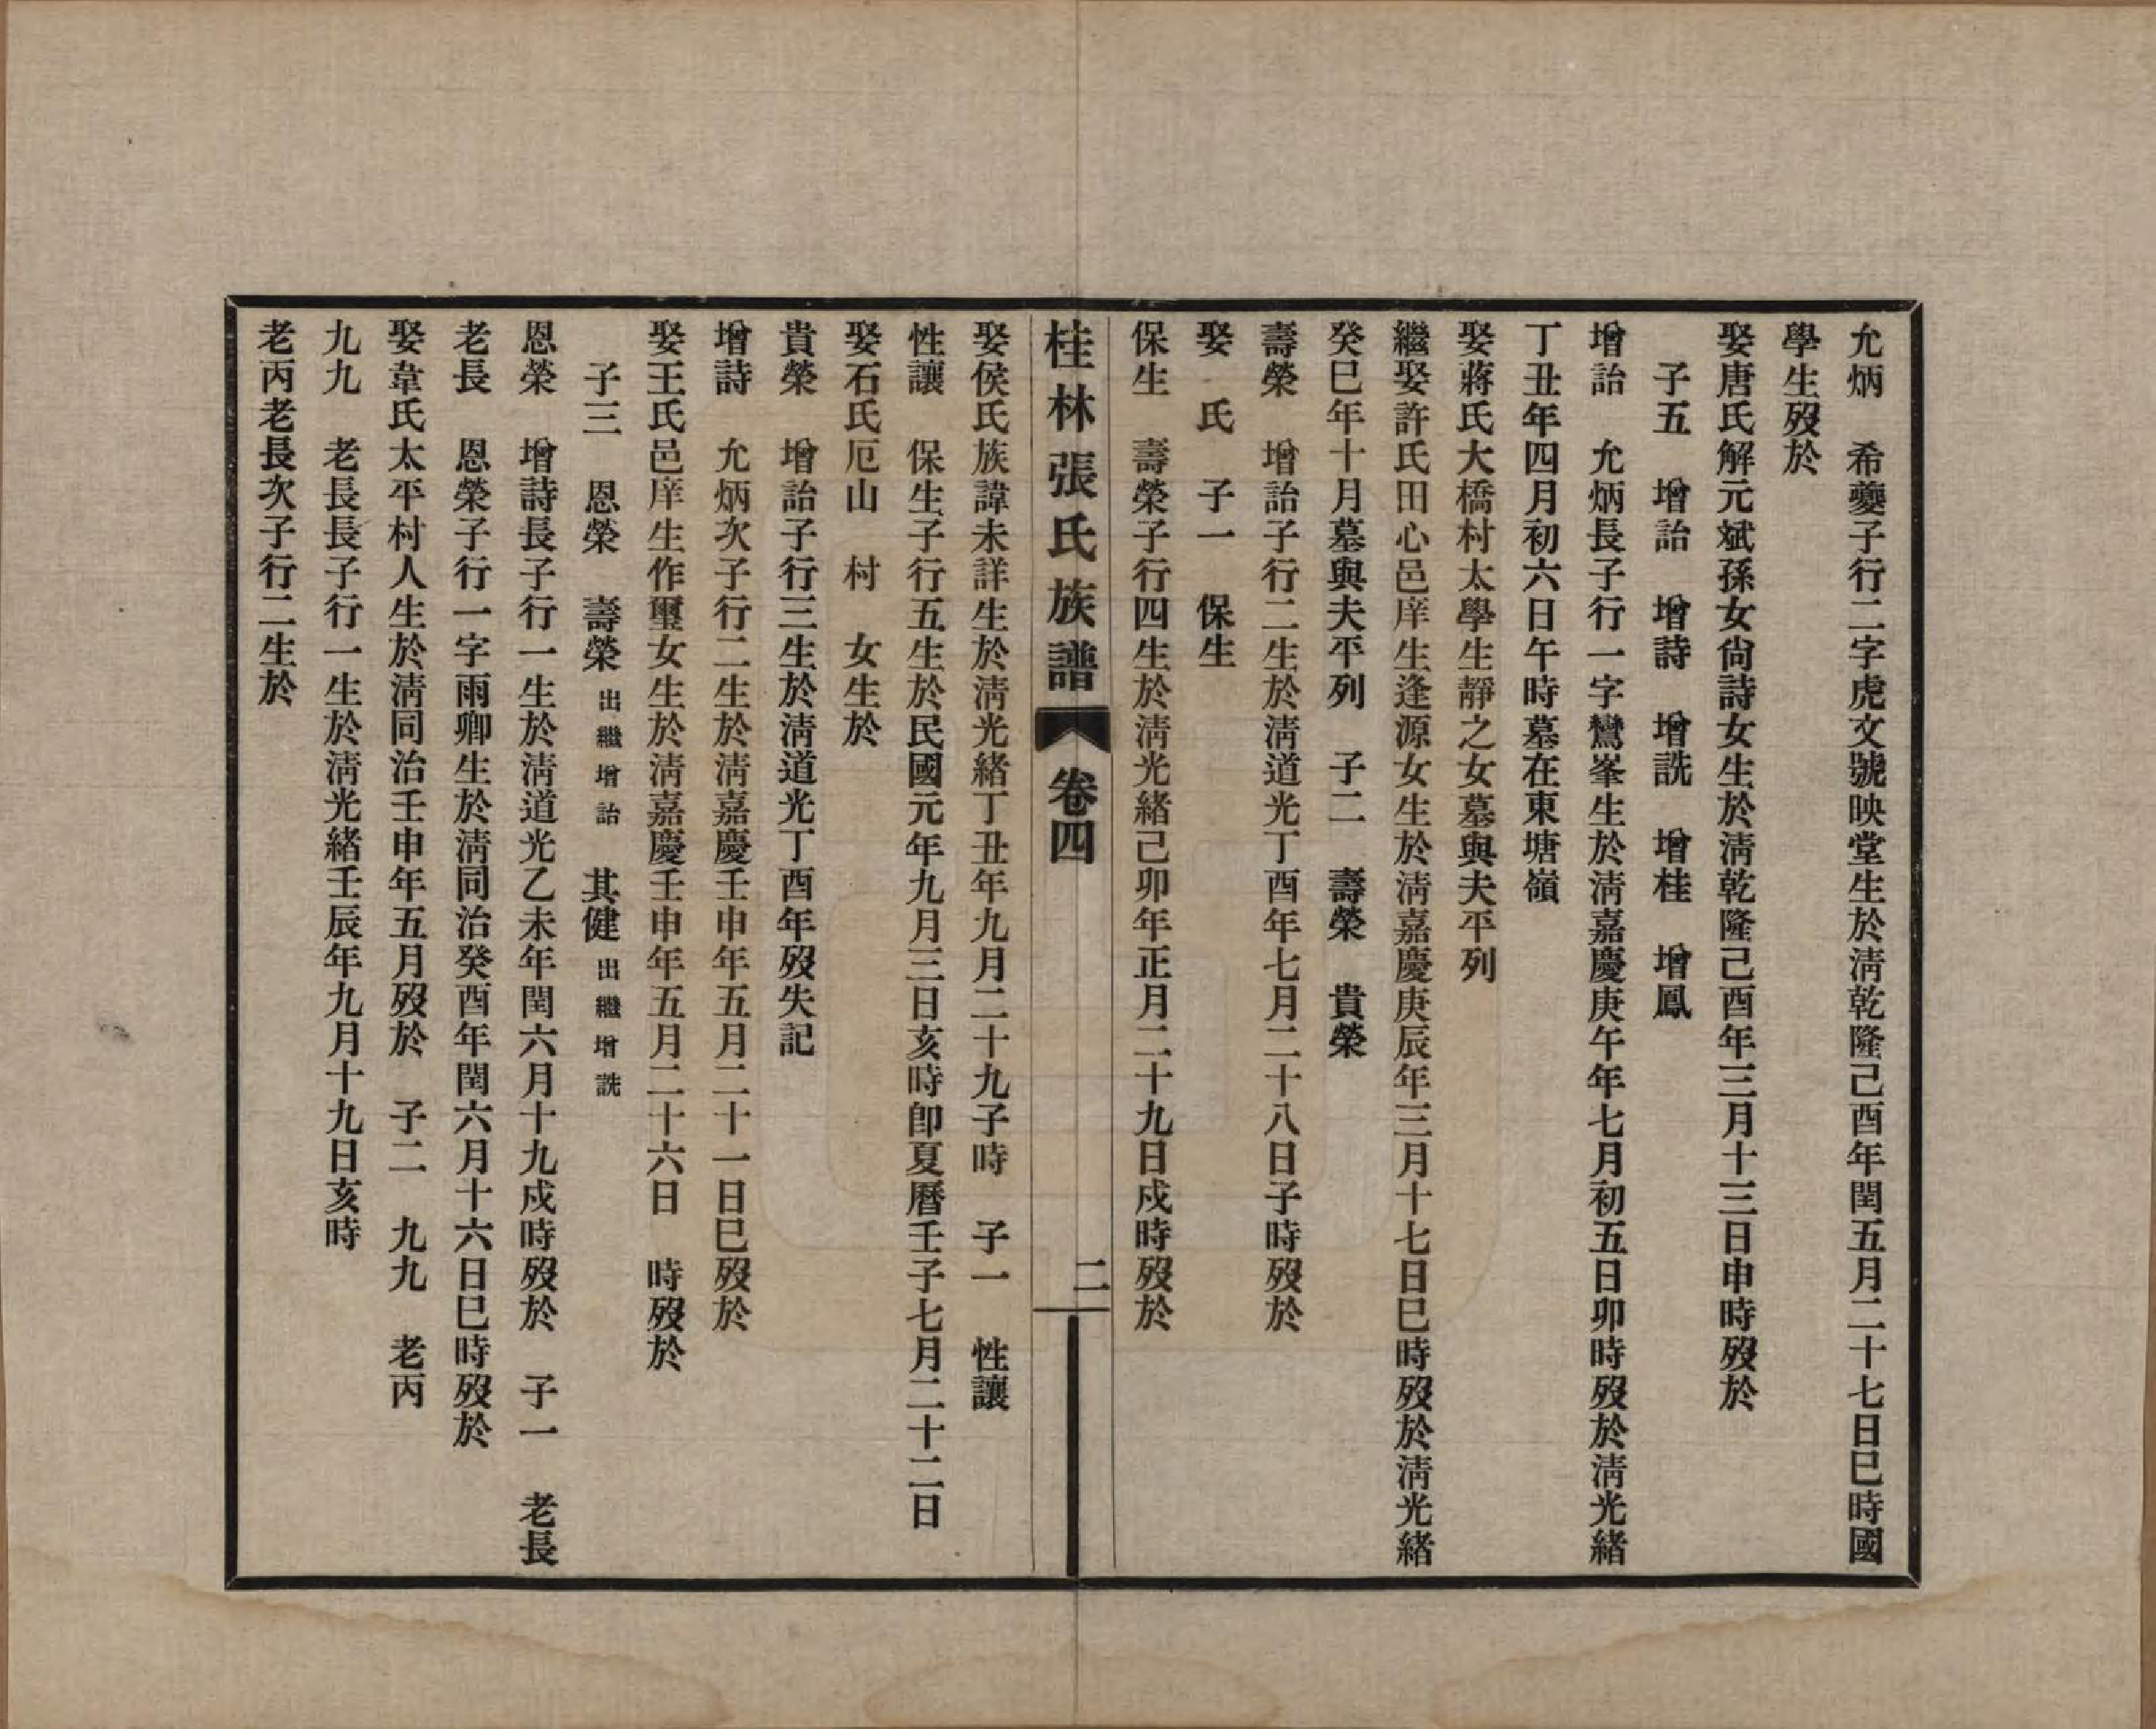 允炳　希夔子行二字虎文號映堂生於淸乾隆己酉年閏五月二十七日巳時國
學生歿於
娶唐氏解元斌孫女尙詩女生於淸乾隆己酉年三月十三日申時歿於
子五　增詒　增詩　增詵　增桂　增鳳
增詒　允炳長子行一字鸞峯生於淸嘉慶庚午年七月初五日卯時歿於淸光緒
丁丑年四月初六日午時墓在東塘嶺
娶蔣氏大橋村太學生靜之女墓與夫平列
繼娶許氏田心邑庠生逢源女生於淸嘉慶庚辰年三月十七日巳時歿於淸光緒
癸巳年十月墓與夫平列　子二　壽榮　貴榮
壽榮　增詒子行二生於淸道光丁酉年七月二十八日子時歿於
娶　氏　子一　保生
保生　壽榮子行四生於淸光緒己卯年正月二十九日戌時歿於
桂林張氏族譜　卷四　二
娶侯氏族諱未詳生於淸光緒丁丑年九月二十九子時　子一　性讓
性讓　保生子行五生於民國元年九月三日亥時卽夏曆壬子七月二十二日
娶石氏厄山　村　女生於
貴榮　增詒子行三生於淸道光丁酉年歿失記
增詩　允炳次子行二生於淸嘉慶壬申年五月二十一日巳歿於
娶王氏邑庠生作璽女生於淸嘉慶壬申年五月二十六日　時歿於
子三　恩榮　壽榮出繼增詒　其健出繼增詵
恩榮　增詩長子行一生於淸道光乙未年閏六月十九戌時歿於　子一　老長
老長　恩榮子行一字雨卿生於淸同治癸酉年閏六月十六日巳時歿於
娶韋氏太平村人生於淸同治壬申年五月歿於　子二　九九　老丙
九九　老長長子行一生於淸光緒壬辰年九月十九日亥時
老丙老長次子行二生於